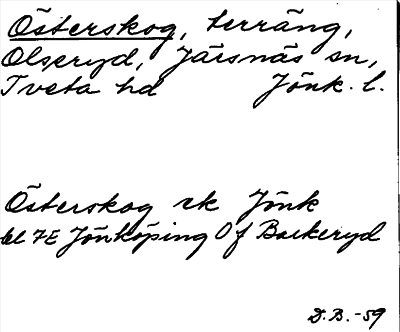 Österskog, terräng,
Olseryd, Järsnäs sn,
Tveta hd Jönk. l.
Österskog rk Jönk
bl 7E Jönköping Of Barkeryd
D.B.-59